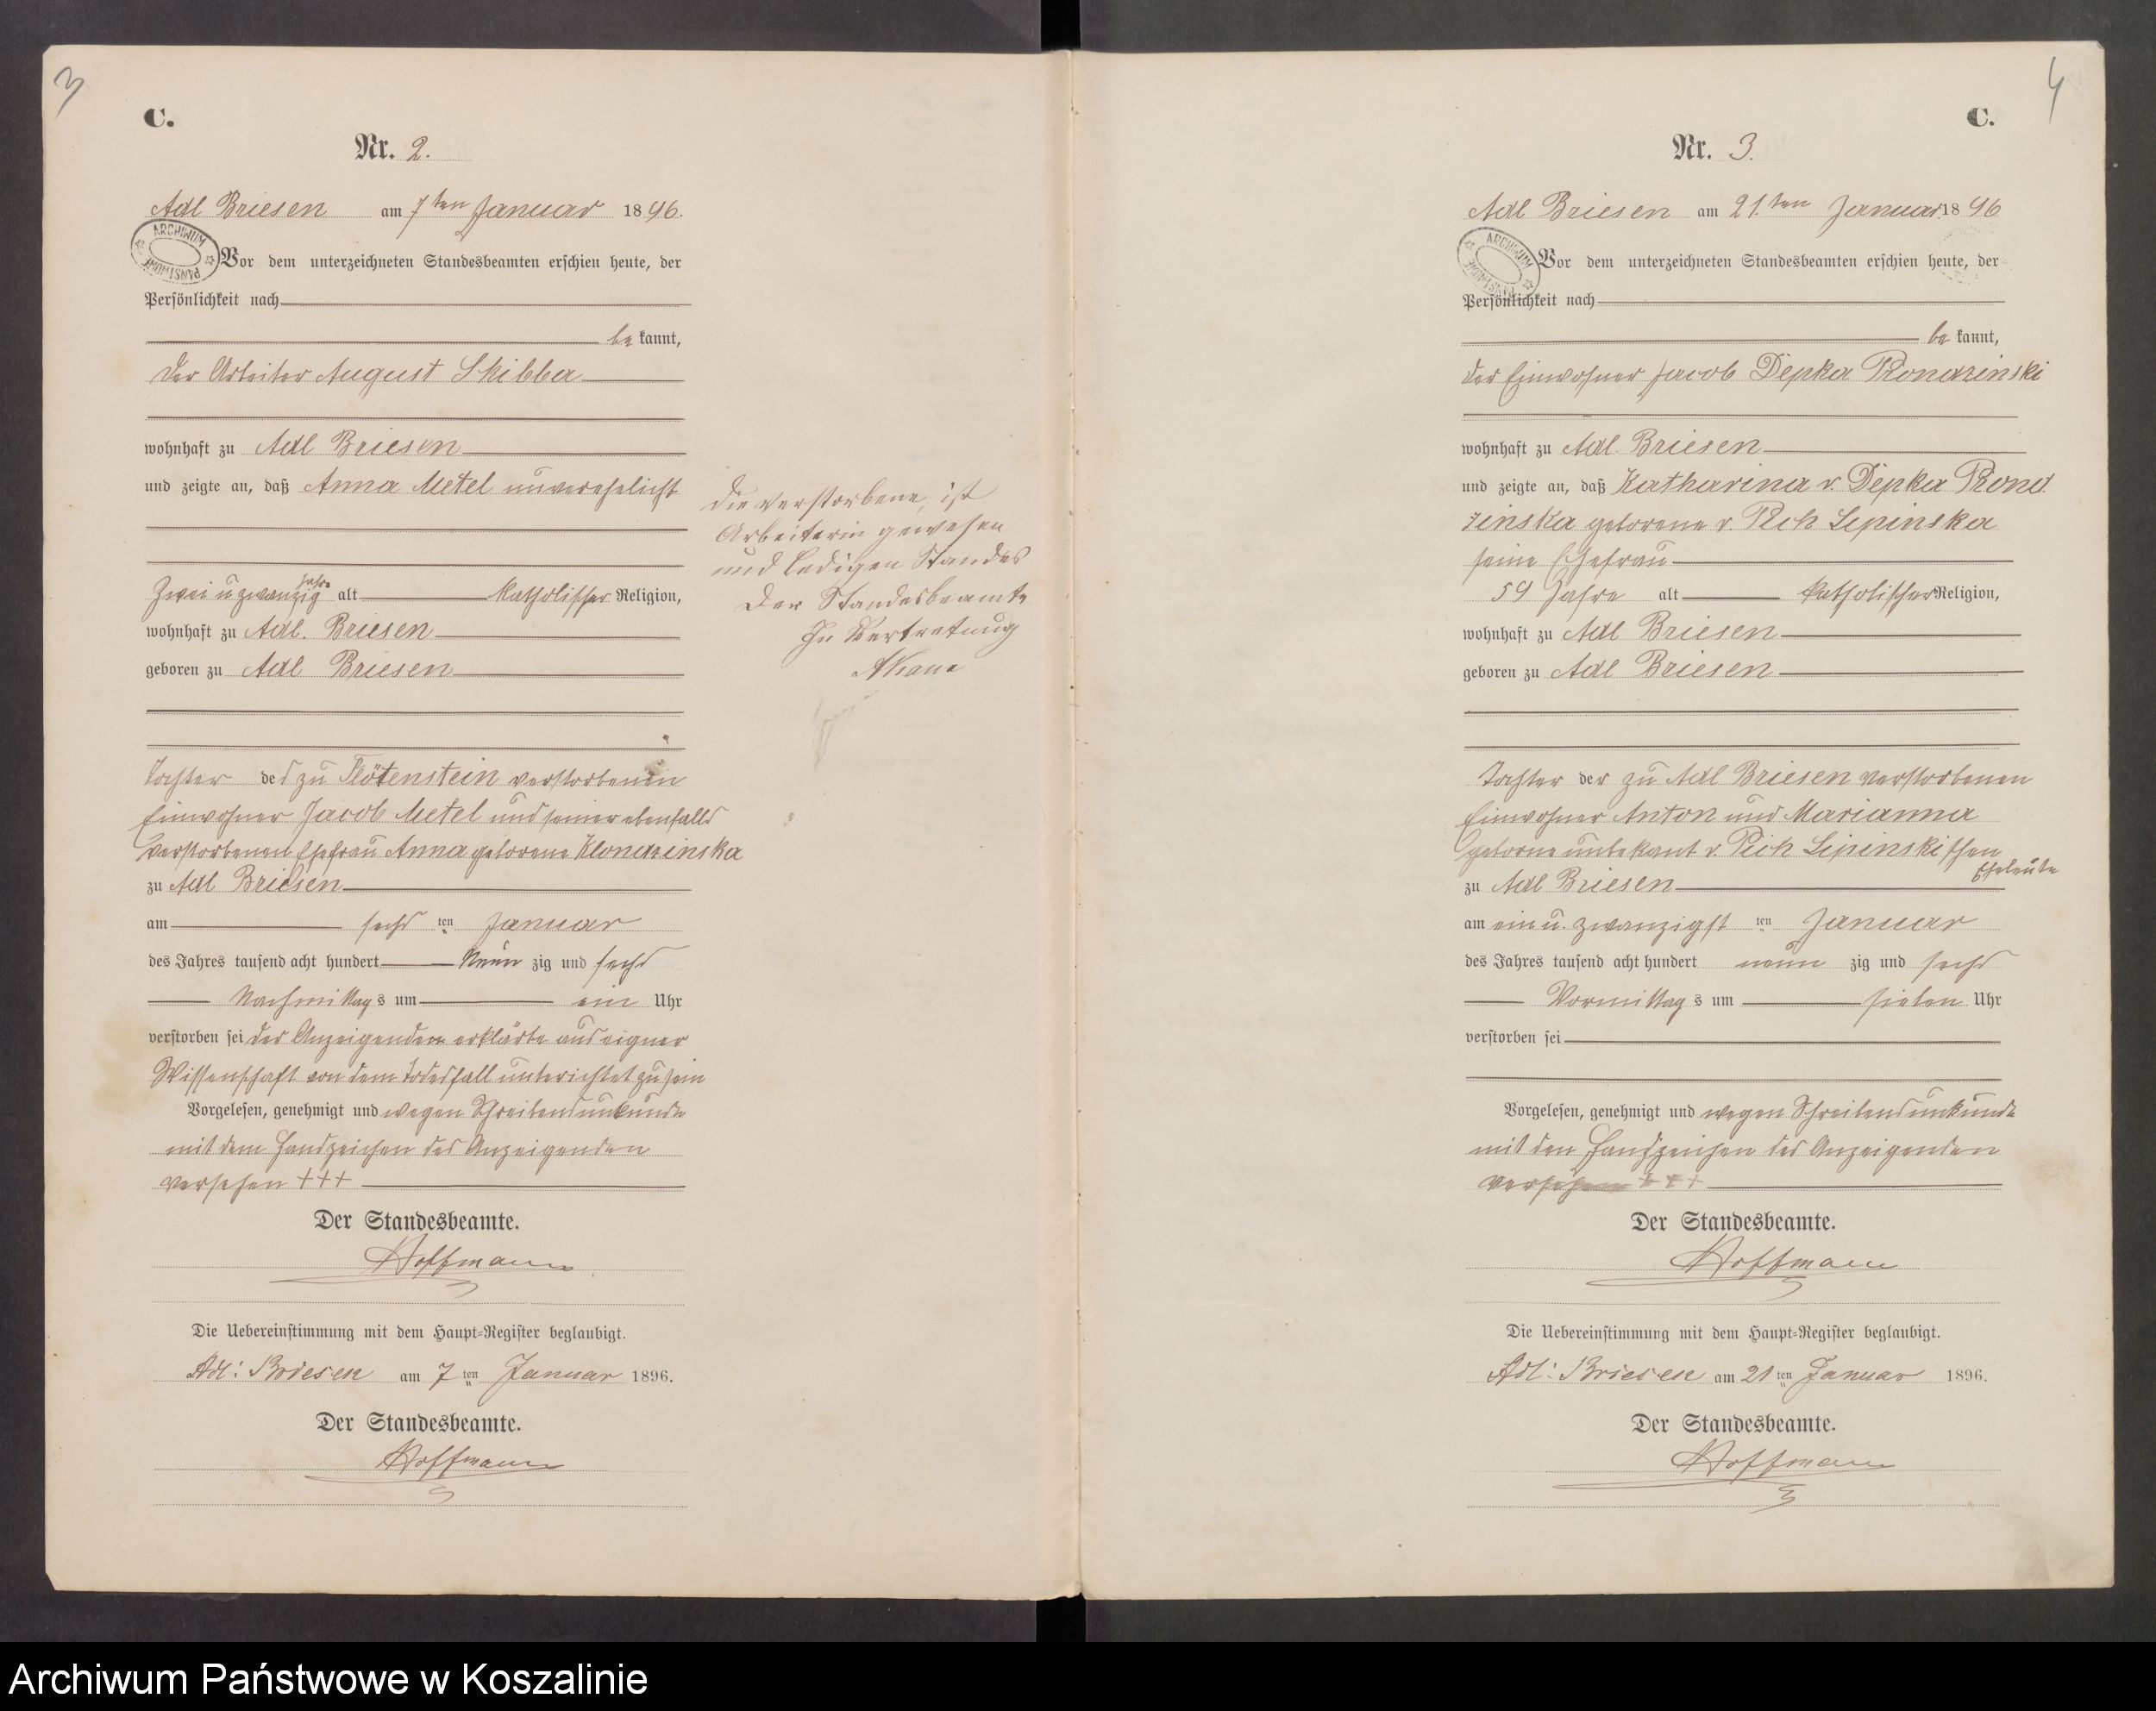 3
C.
Nr. 2.
Adl Briesen am 7ten Januar 1896.
ARCHIWUM PAŃSTWOWE
Vor dem unterzeichneten Standesbeamten erschien heute, der
Persönlichkeit nach
be kannt,
der Arbeiter August Skibba
wohnhaft zu Adl Briesen
und zeigte an, daß Anna Metel unverehelicht
Zwei u zwanzig Jahre alt katholischer Religion,
wohnhaft zu Adl. Briesen
geboren zu Adl Briesen
Tochter des zu Flötenstein verstorbenen
Einwohner Jacob Metel und seiner ebenfalls
verstorbenen Ehefrau Anna geborene Klondzinska
zu Adl Briesen
am sechs ten Januar
des Jahres tausend acht hundert Neun zig und sechs
Nachmittag s um ein Uhr
verstorben sei der Anzeigenden erklärte aus eigner
Wissenschaft von dem Todesfall unterichtet zu sein
Vorgelesen, genehmigt und wegen Schreibensunkunde
mit dem Handzeichen des Anzeigenden
versehen +++
Der Standesbeamte.
Hoffmann
Die Uebereinstimmung mit dem Haupt-Register beglaubigt.
Adl: Briesen am 7 ten Januar 1896.
Der Standesbeamte.
Hoffmann
die verstorbene, ist
Arbeiterin gewesen
und ledigen Standes
Der Standesbeamte
In Vertretung
4
C.
Nr. 3.
Adl Briesen am 21.ten Januar 1896
ARCHIWUM PAŃSTWOWE
Vor dem unterzeichneten Standesbeamten erschien heute, der
Persönlichkeit nach
be kannt,
der Einwohner Jacob Depka Prondzinski
wohnhaft zu Adl. Briesen
und zeigte an, daß Katharina v. Depka Prond
zinska geborene v. Pich Lipinska
seine Ehefrau
59 Jahre alt katholischer Religion,
wohnhaft zu Adl Briesen
geboren zu Adl Briesen
Tochter der zu Adl Briesen verstorbenen
Einwohner Anton und Marianna
geborne unbekant v. Pich Lipinskischen
Eheleute
zu Adl Briesen
am ein u. zwanzigst ten Januar
des Jahres tausend acht hundert neun zig und sechs
Vormittag s um sieben Uhr
verstorben sei
Vorgelesen, genehmigt und wegen Schreibensunkunde
mit den Handzeichen des Anzeigenden
versehen +++
Der Standesbeamte.
Hoffmann
Die Uebereinstimmung mit dem Haupt-Register beglaubigt.
Adl: Briesen am 21 ten Januar 1896.
Der Standesbeamte.
Hoffmann
Archiwum Państwowe w Koszalinie